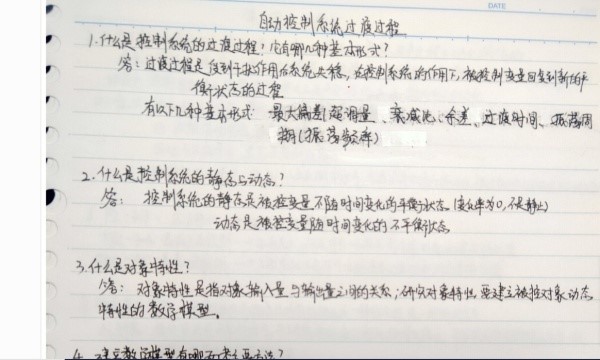 DATE
自动控制系统过渡过程
1.什么是控制系统的过渡过程?它有哪几种基本形式?
答:过渡过程是受到干扰作用后系统失稳,在控制系统的作用下,被控变量回复到新的平
衡状态的过程
有以下几种基本形式:最大偏差(超调量、衰减比、余差、过渡时间、振荡周
期(振荡频率)
2.什么是控制系统的静态与动态?
答:控制系统的静态是被控变量不随时间变化的平衡状态(变化率为0,不是静止)
动态是被控变量随时间变化的不平衡状态
3.什么是对象特性?
答:对象特性是指对象输入量与输出量之间的关系;研究对象特性要建立被控对象动态
特性的数学模型。
4.建立数学模型有哪两类主要方法?